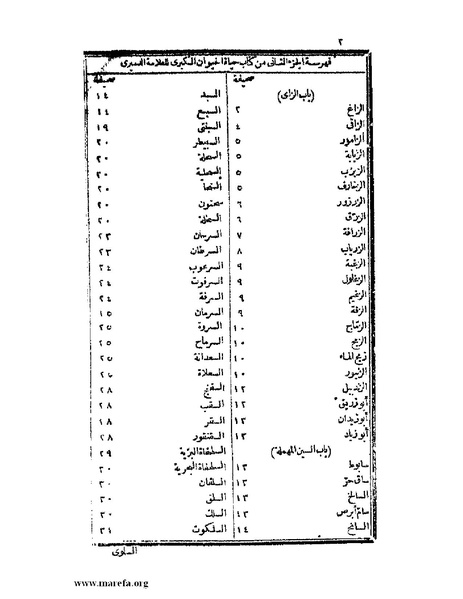 ٢
فهرسة الجزء الثانى من كتاب حياة الحيوان الكبرى للعلامة الدميرى
صحيفة
(باب الزاى)
الزاغ ٢
الزاقى ٤
الزامور ٥
الزبابة ٥
الزبزب ٥
الزخارف ٥
الزرزور ٦
الزرق ٦
الزرافة ٧
الزرياب ٨
الزغبة ٩
الزغلول ٩
الزغيم ٩
الزقة ٩
الزلال ١٠
الزماج ١٠
الزمج ١٠
زمج الماء ١٠
الزنبور ١٠
الزندبيل ١٢
أبو زريق ١٢
أبو زيدان ١٢
أبو زياد ١٣
(باب السين المهملة)
سابوط ١٣
ساق حر ١٣
السالخ ١٣
سام أبرص ١٣
السانح ١٤
صحيفة
السبد ١٤
السبع ١٤
السبنتى ١٩
السبيطر ٢٠
السحلة ٢٠
السحلية ٢٠
السحا ٢٠
سحنون ٢٠
السخلة ٢٠
السرحان ٢٣
السرطان ٢٣
السرعوب ٢٤
السرفوت ٢٤
السرفة ٢٤
السرمان ١٥
السروة ٢٥
السرماح ٢٥
السعدانة ٢٥
السعلاة ٢٥
السفنج ٢٨
السقب ٢٨
السقر ١٨
السقنقور ٢٨
السلحفاة البرية ٢٩
السلحفاة البحرية ٣٠
السلفان ٣٠
السلق ٣٠
السلك ٣٠
السلكوت ٣١
السلوى
www.marefa.org